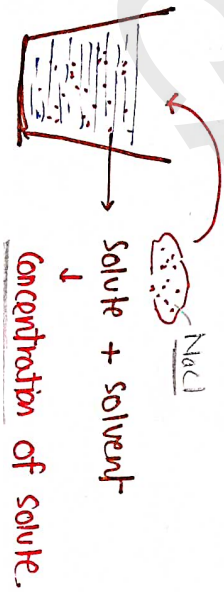 NaCl
Solute + Solvent
↓
Concentration of solute.